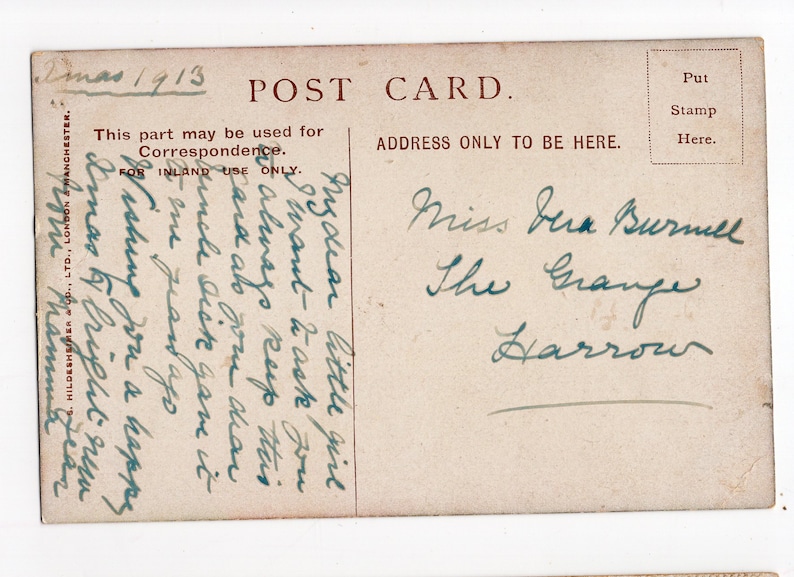 Xmas 1913
POST CARD.
Put
Stamp
Here.
This part may be used for
Correspondence.
FOR INLAND USE ONLY.
ADDRESS ONLY TO BE HERE.
S. HILDESHEIMER & CO., LTD., LONDON & MANCHESTER.
My dear little girl
I want to ask you
to always keep this
card as your dear
Uncle Dick gave it
to me years ago
Wishing you a happy
Xmas & bright New
Year
Mamma
Miss Vera Burnell
The Grange
Harrow